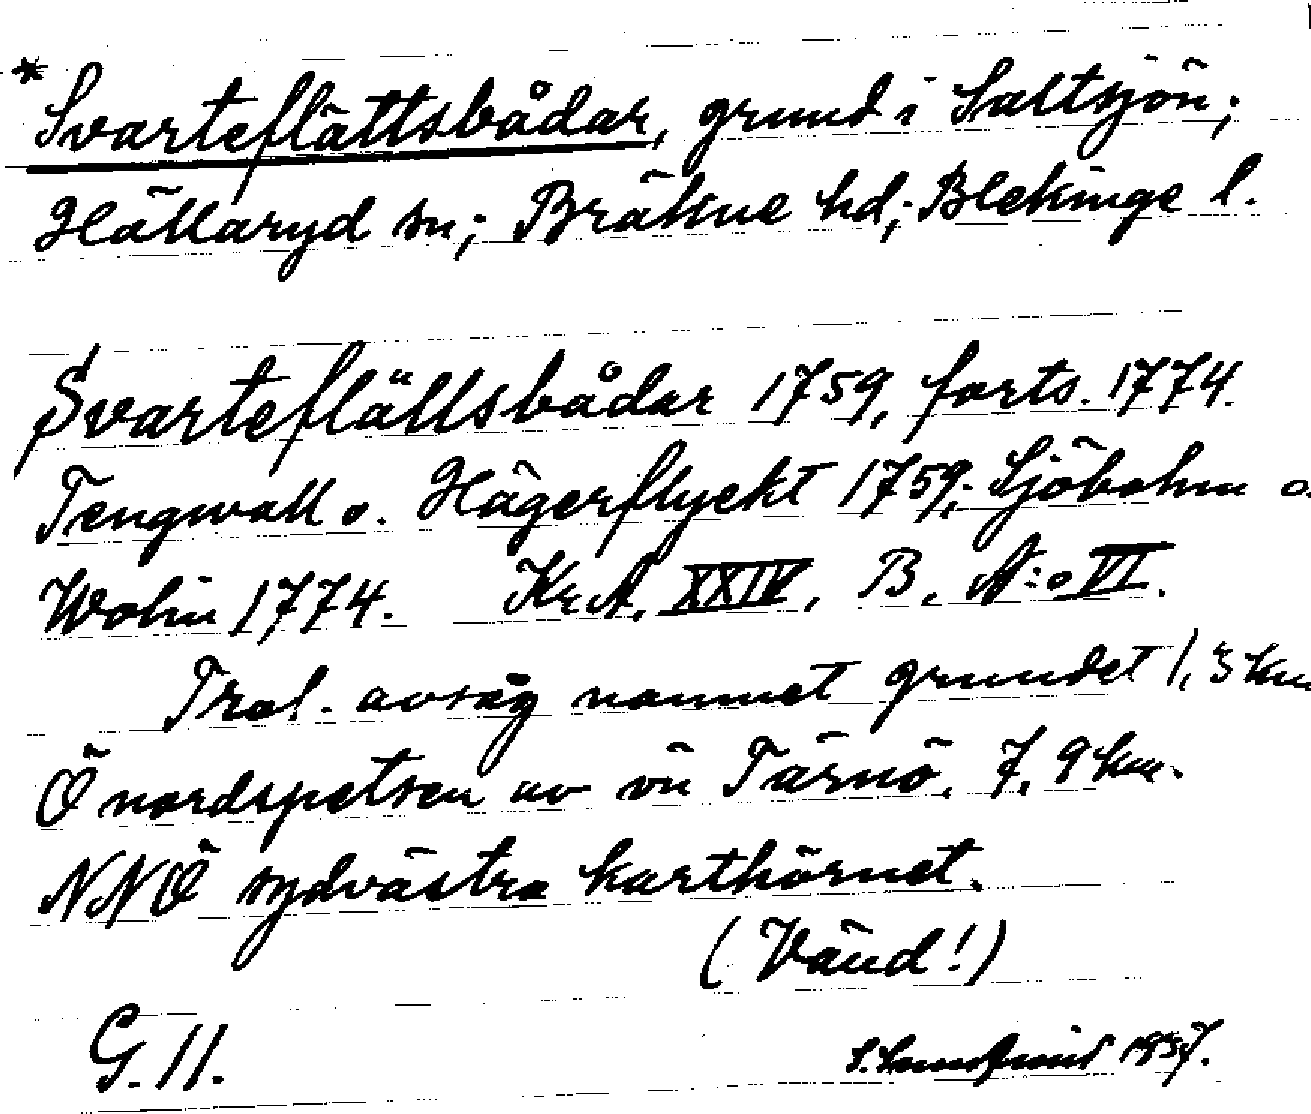 *Svarteflättsbådar, grund i Saltsjön;
Hällaryd sn; Bräkne hd; Blekinge l.
Svarteflättsbådar 1759, forts. 1774.
Tengwall o. Hägerflyckt 1759; Sjöbohm o.
Wohin 1774. KrA, XXIV, B, N:o VI.
Trol. avsåg namnet grundet 1,3 km
Ö nordspetsen av ön Tärnö, 7,9 km.
NNÖ sydvästra karthörnet.
(Vänd!)
G. 11.
1937.